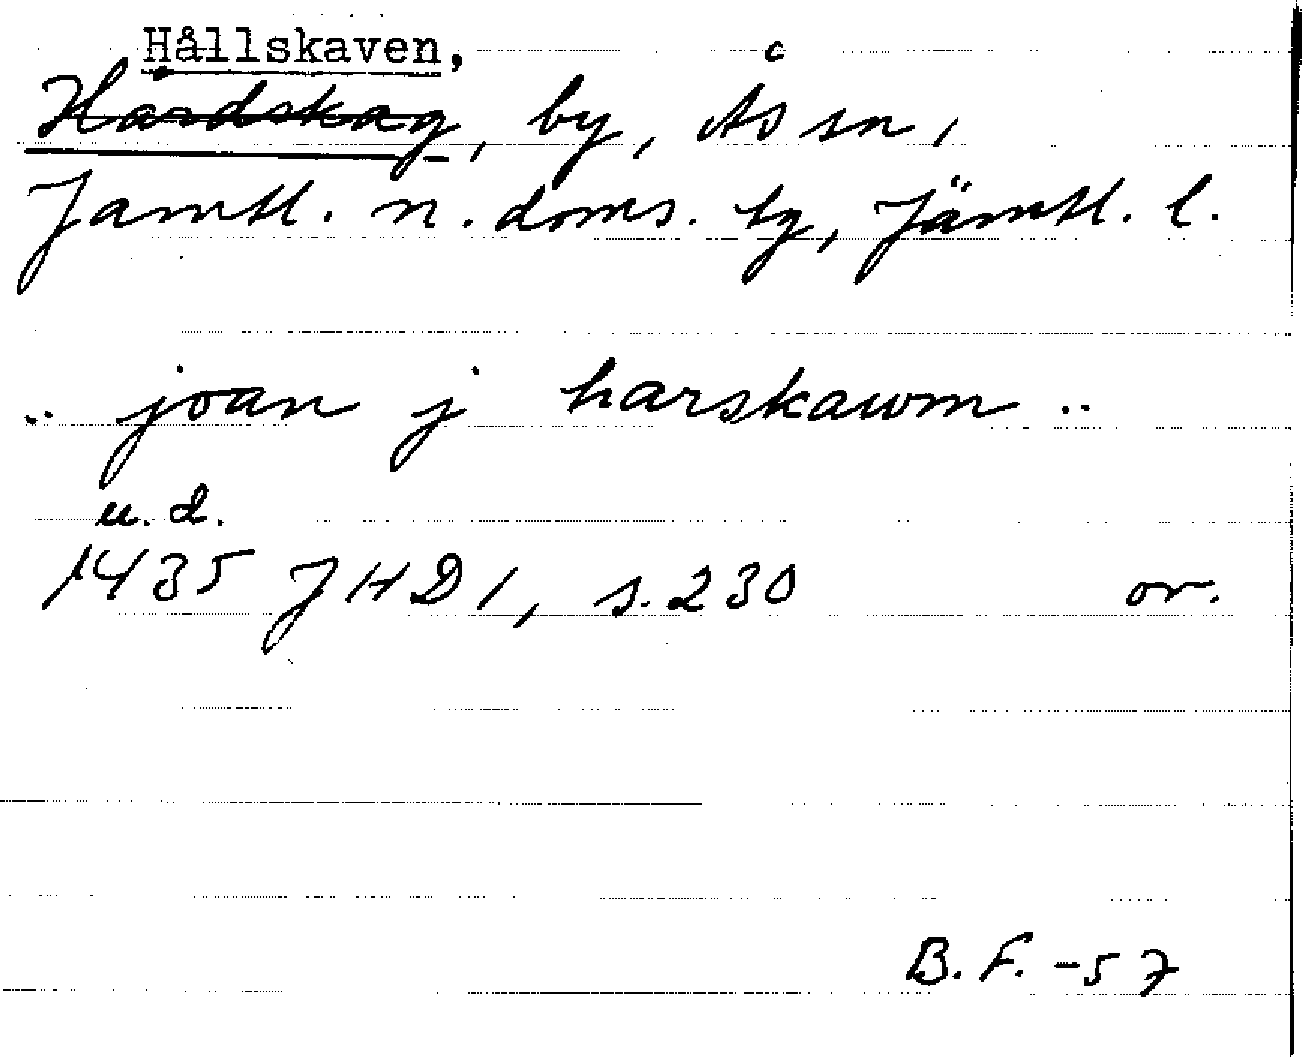 Hållskaven,
Hardskag, by, Ås sn,
Jamtl. n. doms. tg, Jämtl. l.
.. joan j harskawm ..
u. d.
1435 JHD 1, s. 230 or.
B. F. -57